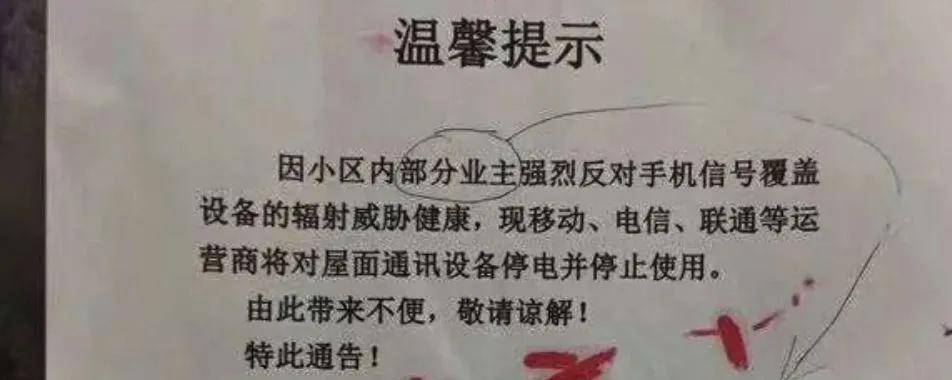 温馨提示
因小区内部分业主强烈反对手机信号覆盖
设备的辐射威胁健康，现移动、电信、联通等运
营商将对屋面通讯设备停电并停止使用。
由此带来不便，敬请谅解！
特此通告！